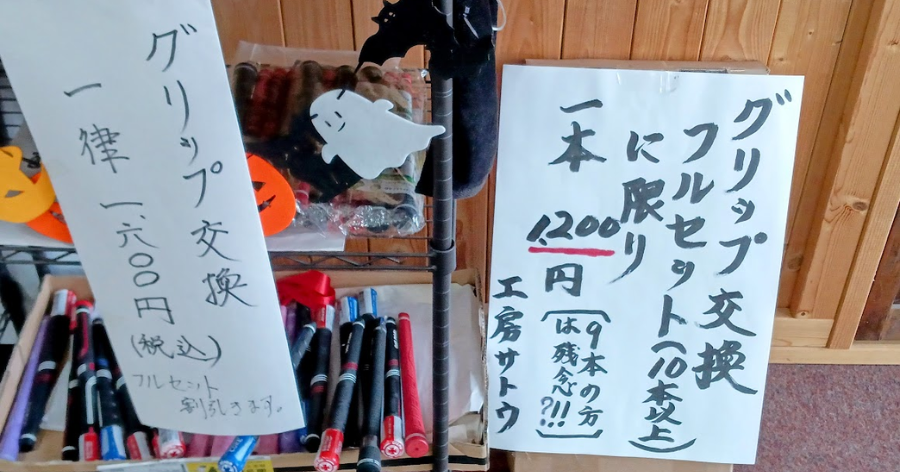 グリップ交換
一律 一、六〇〇円
(税込)
フルセット
割引きます。
グリップ交換
フルセット(10本以上)
に限り
一本 1,200円
(9本の方
は残念?!!)
工房サトウ